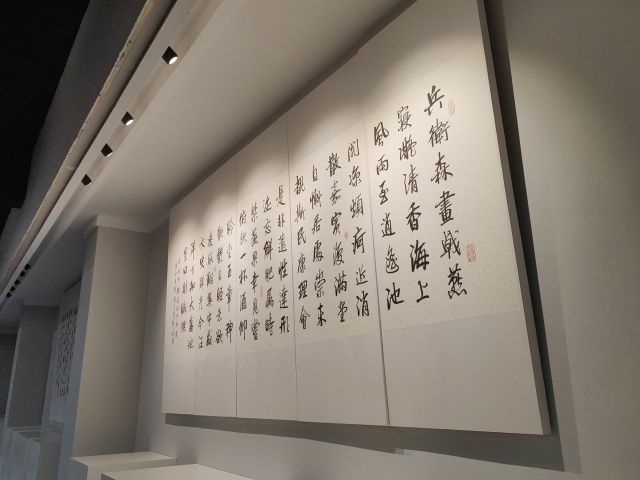 兵衛森畫戟燕
寢凝清香海上
風雨至逍遥池
閣凉煩疴近消
散嘉賓復滿堂
自慚居處崇未
覩斯民康理會
是非遣性達形
迹忘鮮肥屬時
禁蔬果幸見嘗
俯飲一杯酒仰
聆金玉章神
歡體自輕意欲
凌風翔吴中盛
文史群彦今汪
洋方知大藩地
豈曰財賦强